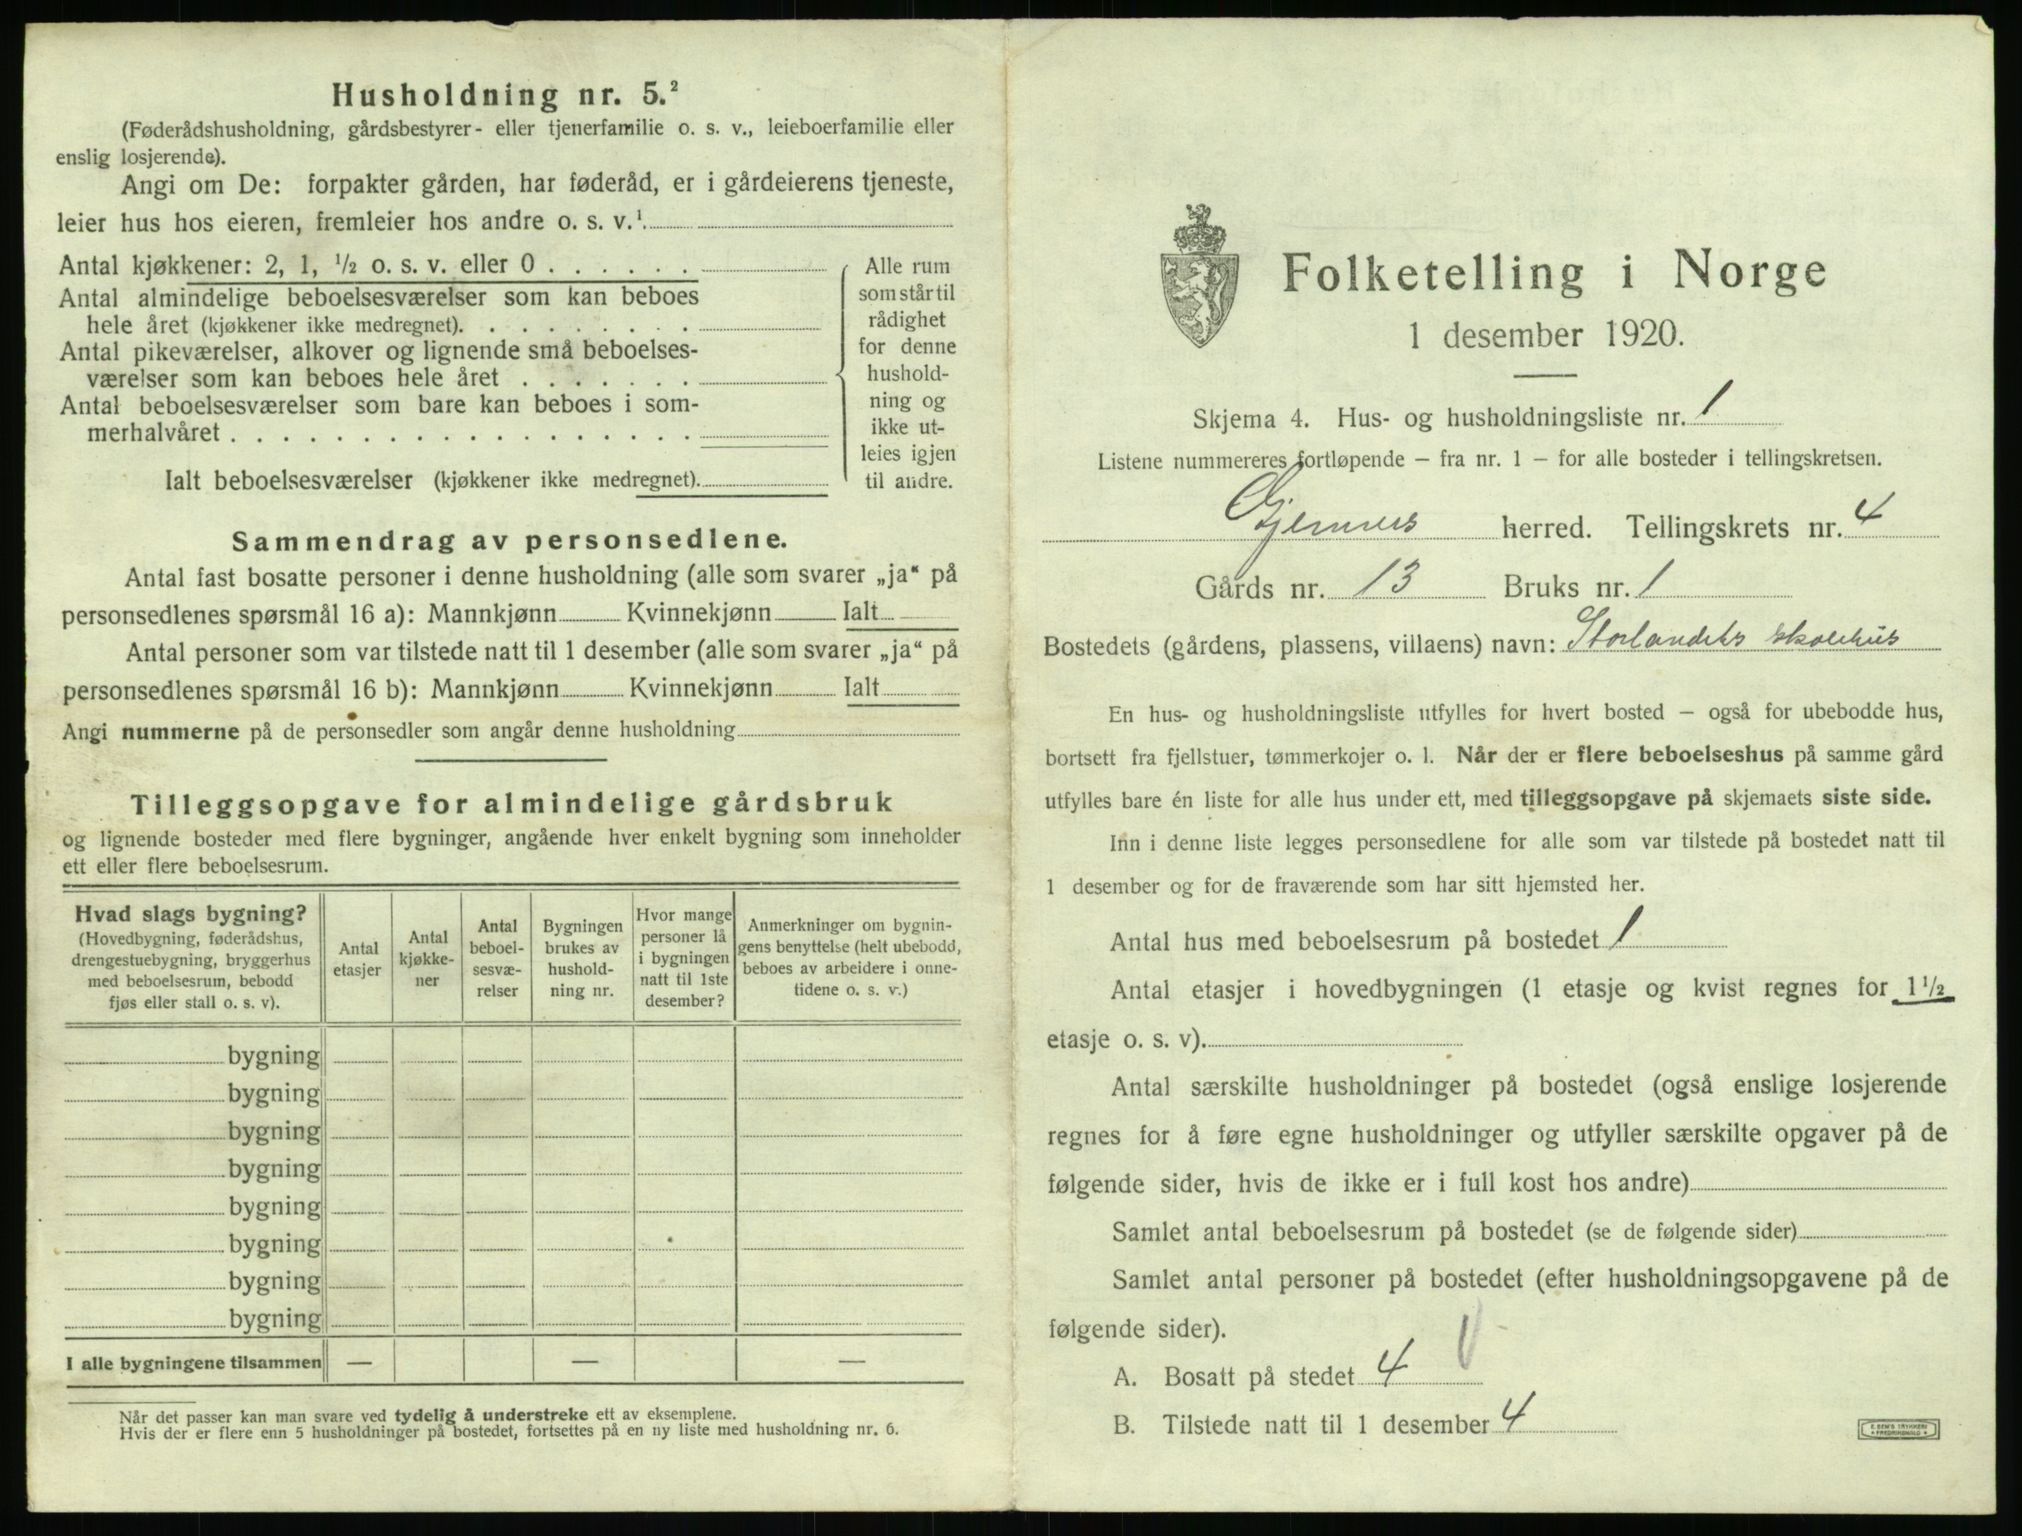 Husholdning nr. 5.²
(Føderådshusholdning, gårdsbestyrer- eller tjenerfamilie o. s. v., leieboerfamilie eller
enslig losjerende).
Angi om De: forpakter gården, har føderåd, er i gårdeierens tjeneste,
leier hus hos eieren, fremleier hos andre o. s. v.¹
Antal kjøkkener: 2, 1, ½ o. s. v. eller 0 . . . . . .
Antal almindelige beboelsesværelser som kan beboes
hele året (kjøkkener ikke medregnet). . . . . . . . .
Antal pikeværelser, alkover og lignende små beboelses-
værelser som kan beboes hele året . . . . . . .
Antal beboelsesværelser som bare kan beboes i som-
merhalvåret . . . . . . . . . . . . . . . . . .
Ialt beboelsesværelser (kjøkkener ikke medregnet).
Alle rum
som står til
rådighet
for denne
hushold-
ning og
ikke ut-
leies igjen
til andre.
Sammendrag av personsedlene.
Antal fast bosatte personer i denne husholdning (alle som svarer „ja“ på
personsedlenes spørsmål 16 a): Mannkjønn Kvinnekjønn Ialt
Antal personer som var tilstede natt til 1 desember (alle som svarer „ja“ på
personsedlenes spørsmål 16 b): Mannkjønn Kvinnekjønn Ialt
Angi nummerne på de personsedler som angår denne husholdning
Tilleggsopgave for almindelige gårdsbruk
og lignende bosteder med flere bygninger, angående hver enkelt bygning som inneholder
ett eller flere beboelsesrum.
Hvad slags bygning?
(Hovedbygning, føderådshus,
drengestuebygning, bryggerhus
med beboelsesrum, bebodd
fjøs eller stall o. s. v).
Antal
etasjer
Antal
kjøkke-
ner
Antal
beboel-
sesvæ-
relser
Bygningen
brukes av
hushold-
ning nr.
Hvor mange
personer lå
i bygningen
natt til 1ste
desember?
Anmerkninger om bygnin-
gens benyttelse (helt ubebodd,
beboes av arbeidere i onne-
tidene o. s. v.)
bygning
bygning
bygning
bygning
bygning
bygning
bygning
bygning
I alle bygningene tilsammen — — —
Når det passer kan man svare ved tydelig å understreke ett av eksemplene.
Hvis der er flere enn 5 husholdninger på bostedet, fortsettes på en ny liste med husholdning nr. 6.
Folketelling i Norge
1 desember 1920.
Skjema 4. Hus- og husholdningsliste nr. 1
Listene nummereres fortløpende – fra nr. 1 – for alle bosteder i tellingskretsen.
Gjemnes herred. Tellingskrets nr. 4
Gårds nr. 13 Bruks nr. 1
Bostedets (gårdens, plassens, villaens) navn: Storlandets skolehus
En hus- og husholdningsliste utfylles for hvert bosted – også for ubebodde hus,
bortsett fra fjellstuer, tømmerkojer o. l. Når der er flere beboelseshus på samme gård
utfylles bare én liste for alle hus under ett, med tilleggsopgave på skjemaets siste side.
Inn i denne liste legges personsedlene for alle som var tilstede på bostedet natt til
1 desember og for de fraværende som har sitt hjemsted her.
Antal hus med beboelsesrum på bostedet 1
Antal etasjer i hovedbygningen (1 etasje og kvist regnes for 1½
etasje o. s. v).
Antal særskilte husholdninger på bostedet (også enslige losjerende
regnes for å føre egne husholdninger og utfyller særskilte opgaver på de
følgende sider, hvis de ikke er i full kost hos andre)
Samlet antal beboelsesrum på bostedet (se de følgende sider)
Samlet antal personer på bostedet (efter husholdningsopgavene på de
følgende sider).
A. Bosatt på stedet 4
B. Tilstede natt til 1 desember 4